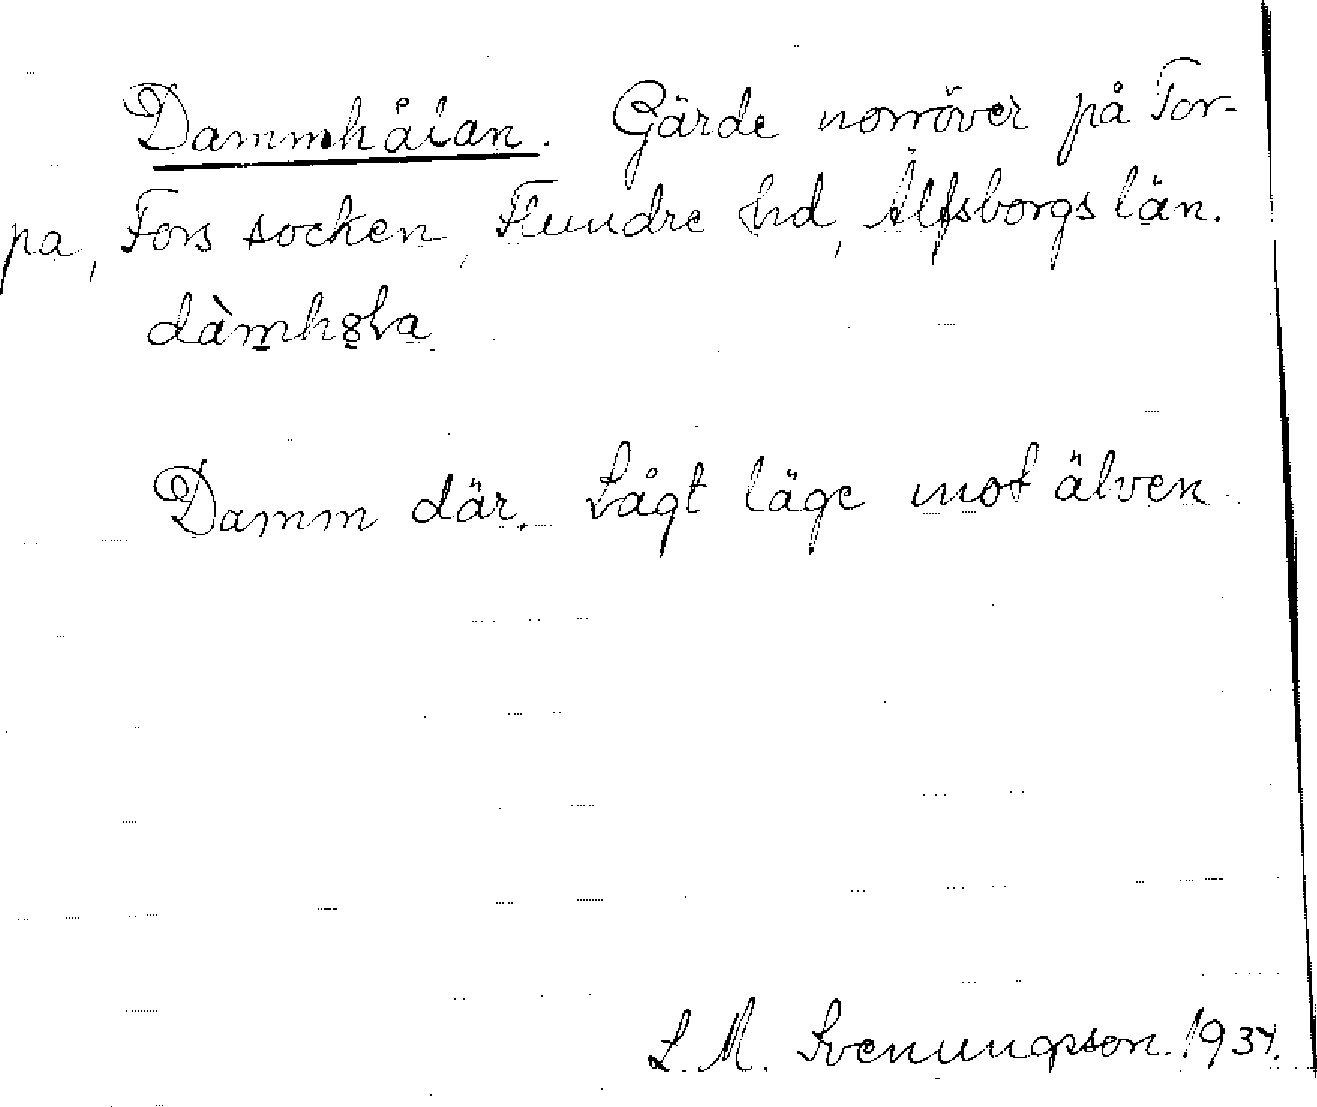 Dammhålan. Gärde norröver på Tor-
pa, Fors socken, Flundre hd, Älfsborgs län.
Damm där. Lågt läge mot älven.
L. M. Svenungsson. 1934.